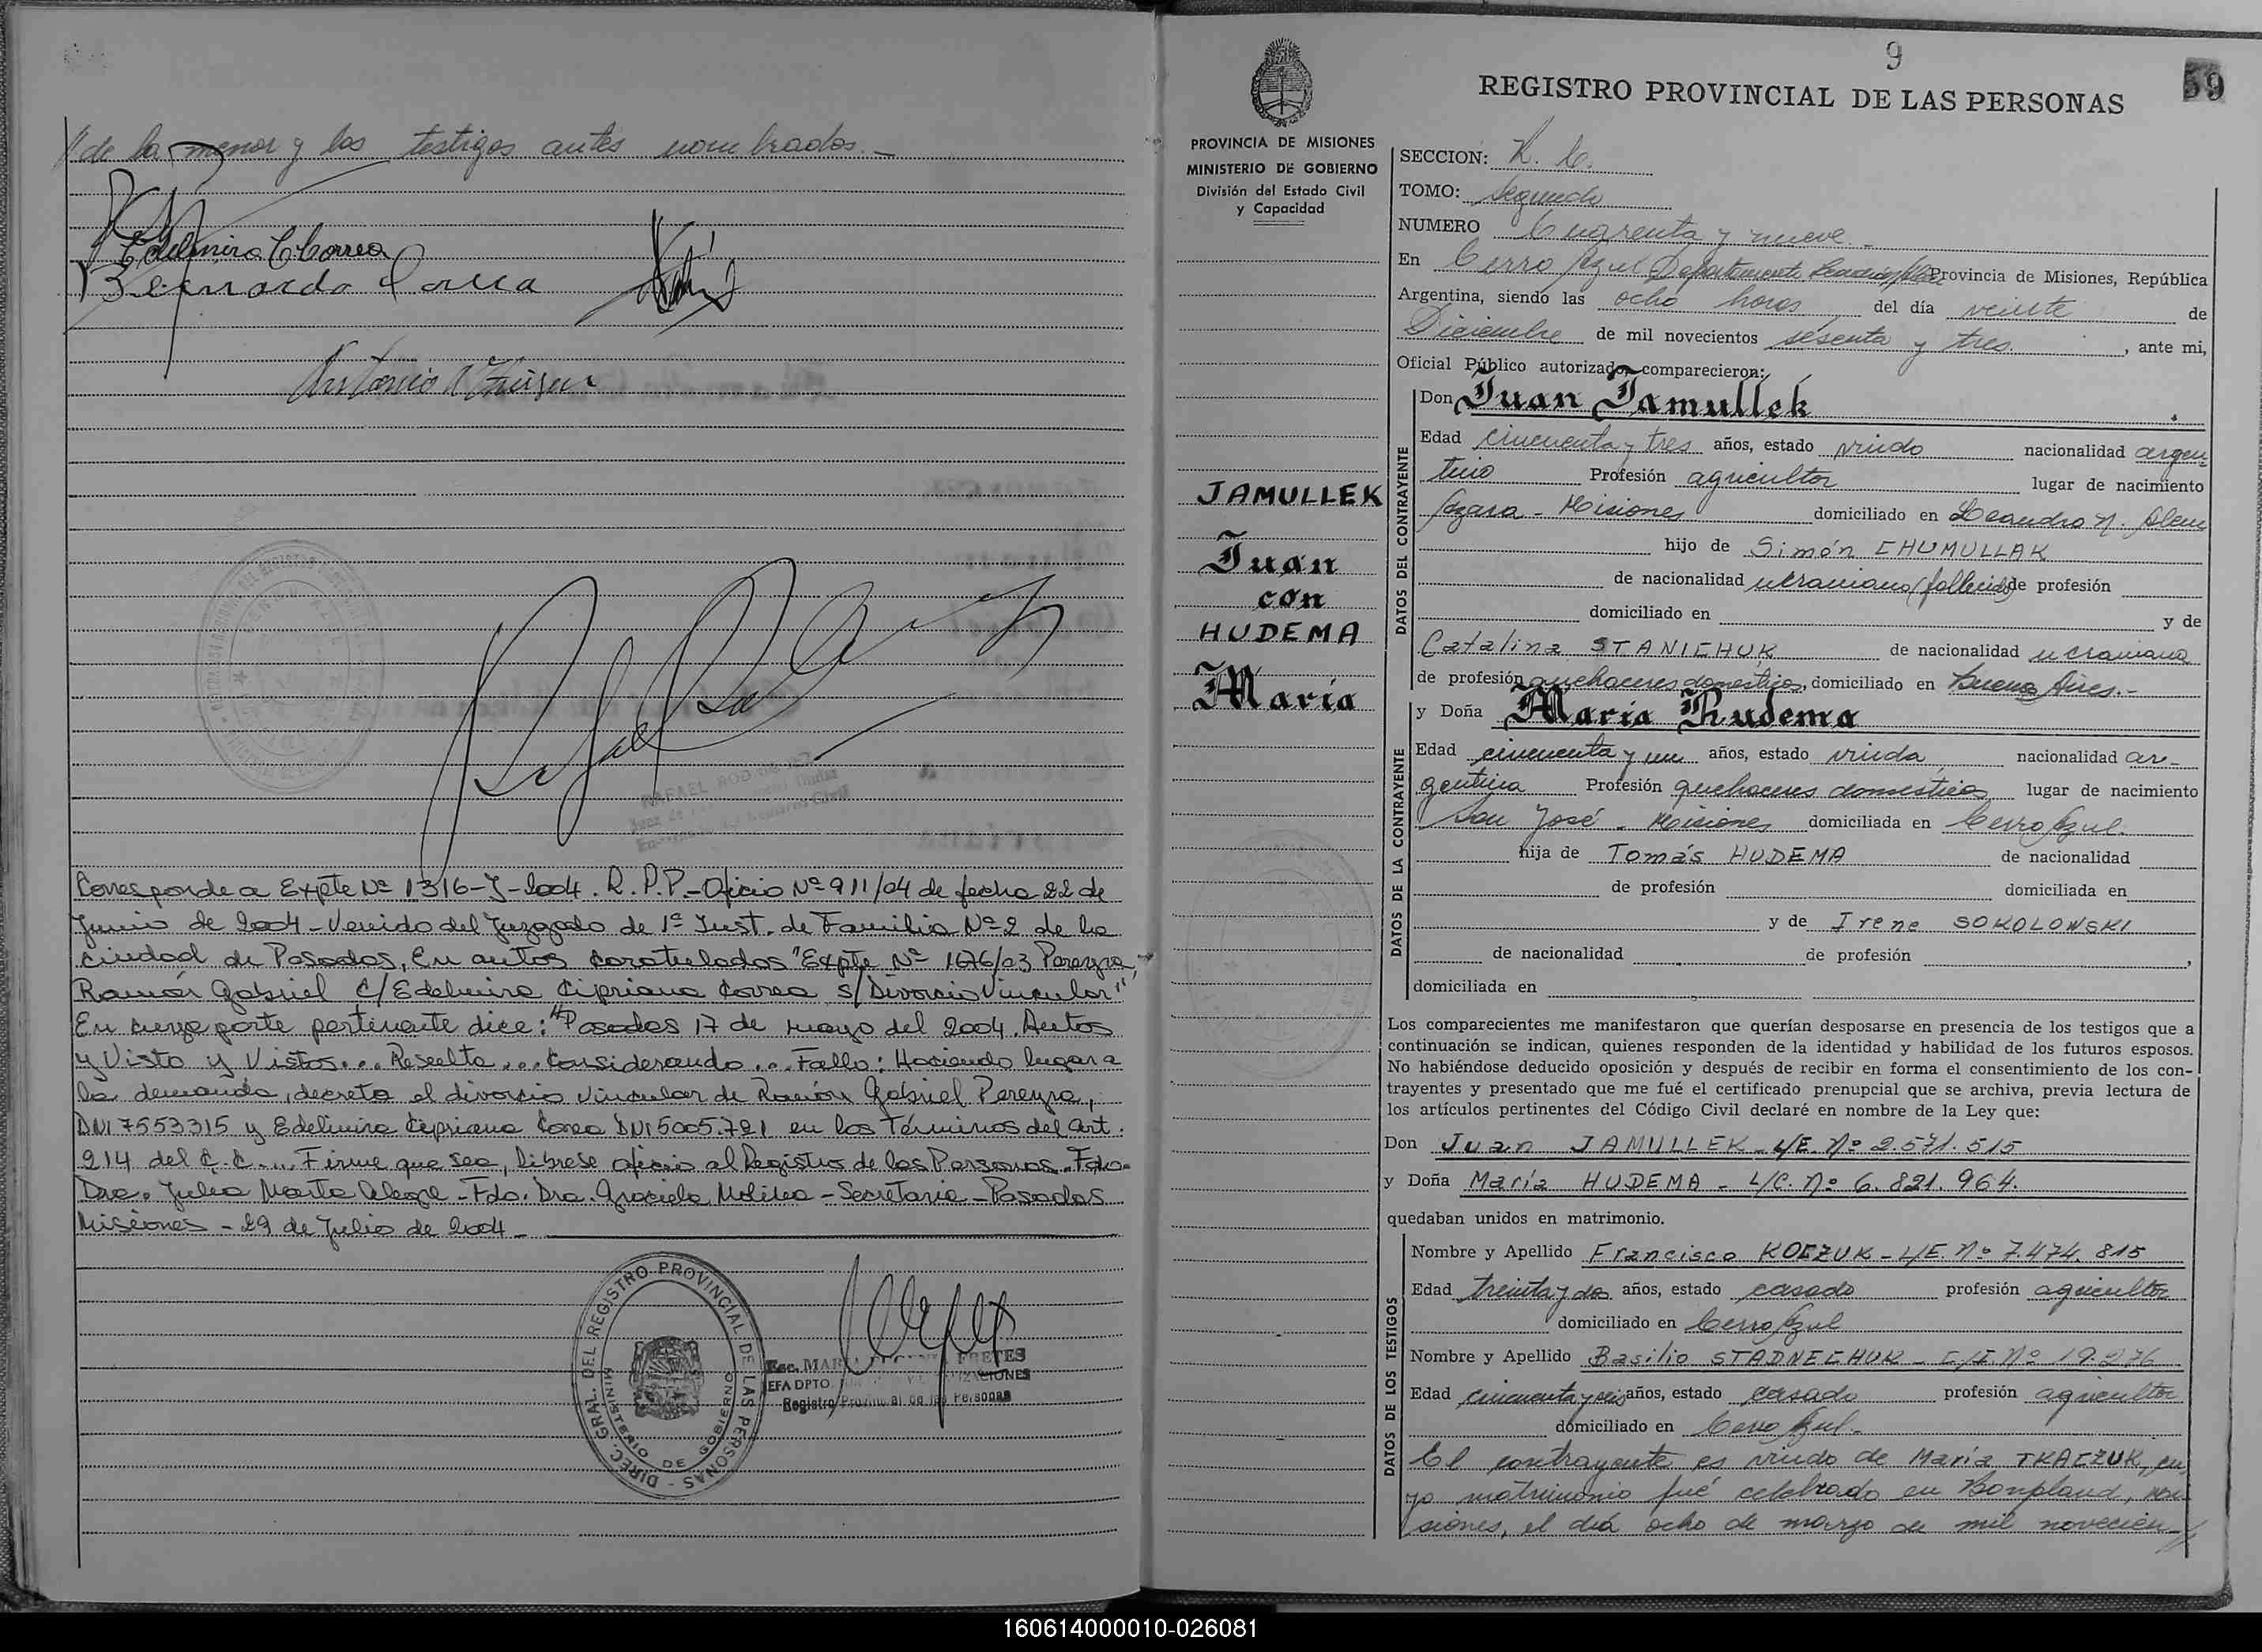 //de la menor y los testigos antes nombrados.-
Edelmira C Correa
Bernardo Correa
Antonio
RAFAEL
Corresponde a Expte Nº 1316-J-2004. R.P.P.- Oficio Nº 911/04 de fecha 22 de
Junio de 2004 - Venido del Juzgado de 1ª Inst. de Familia Nº 2 de la
ciudad de Posadas, En autos caratulados "Expte Nº 1676/03 Pereyra,
Ramón Gabriel C/ Edelmira Cipriana Correa S/ Divorcio Vincular"
En cuya parte pertinente dice: "Posadas 17 de mayo del 2004. Autos
y Visto y Vistos... Resulta... Considerando... Fallo: Haciendo lugar a
la demanda, decreto el divorcio vincular de Ramón Gabriel Pereyra,
DNI 7553315 y Edelmira Cipriana Correa DNI 5005.721 en los Términos del art.
214 del C.C.... Firme que sea, líbrese oficio al Registro de las Personas. Fdo.
Dra. Julia Marta Alegre - Fdo. Dra. Graciela Molina - Secretaria - Posadas
Misiones - 29 de Julio de 2004 -
DIREC. GRAL. DEL REGISTRO PROVINCIAL DE LAS PERSONAS -
MINISTERIO DE GOBIERNO
Esc. MARIA FRETES
JEFA DPTO.
Registro Provincial de las Personas
9
59
REGISTRO PROVINCIAL DE LAS PERSONAS
PROVINCIA DE MISIONES
MINISTERIO DE GOBIERNO
División del Estado Civil
y Capacidad
JAMULLEK
Juan
con
HUDEMA
María
SECCION:
TOMO: Segundo
NUMERO Cuarenta y nueve.-
En Cerro Azul Departamento Provincia de Misiones, República
Argentina, siendo las ocho horas del día veinte de
Diciembre de mil novecientos sesenta y tres. , ante mi,
Oficial Público autorizado, comparecieron:
DATOS DEL CONTRAYENTE
Don Juan Jamullek
Edad cincuenta y tres años, estado viudo nacionalidad argen-
tino Profesión agricultor lugar de nacimiento
Azara - Misiones domiciliado en Leandro N. Alem
hijo de Simón CHUMULLAK
de nacionalidad ucraniano (fallecido) de profesión
domiciliado en y de
Catalina STANICHUK de nacionalidad ucraniana
de profesión quehaceres domesticos, domiciliado en Buenos Aires.-
DATOS DE LA CONTRAYENTE
y Doña María Hudema
Edad cincuenta y un años, estado viuda nacionalidad ar-
gentina Profesión quehaceres domesticos lugar de nacimiento
San José - Misiones domiciliada en Cerro Azul.
hija de Tomás HUDEMA de nacionalidad
de profesión domiciliada en
y de Irene SOKOLOWSKI
de nacionalidad de profesión ,
domiciliada en
Los comparecientes me manifestaron que querían desposarse en presencia de los testigos que a
continuación se indican, quienes responden de la identidad y habilidad de los futuros esposos.
No habiéndose deducido oposición y después de recibir en forma el consentimiento de los con-
trayentes y presentado que me fué el certificado prenupcial que se archiva, previa lectura de
los artículos pertinentes del Código Civil declaré en nombre de la Ley que:
Don Juan JAMULLEK - L/E. Nº 2.571.515
y Doña María HUDEMA - L/C. Nº 6.821.964.
quedaban unidos en matrimonio.
DATOS DE LOS TESTIGOS
Nombre y Apellido Francisco KOCZUK - L/E. Nº 7.474.815
Edad treinta y dos años, estado casado profesión agricultor
domiciliado en Cerro Azul
Nombre y Apellido Basilio STADNECHUK - C/I. Nº 19.276
Edad cincuenta y seis años, estado casado profesión agricultor
domiciliado en Cerro Azul.-
El contrayente es viudo de María TKACZUK, cu-
yo matrimonio fué celebrado en Bonpland, Mi-
siones, el día ocho de marzo de mil novecien-//
160614000010-026081